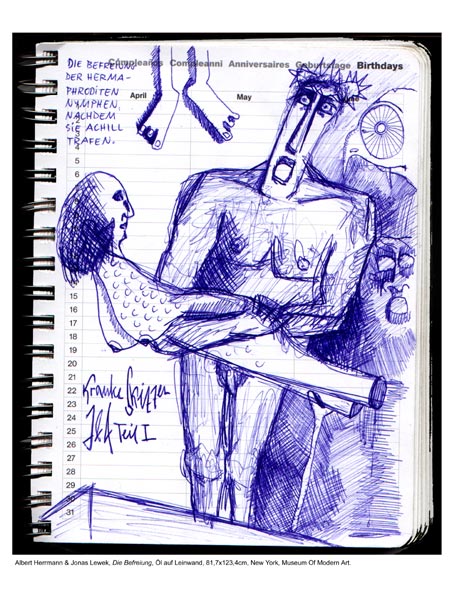 Cumpleaños Compleanni Anniversaires Geburtstage Birthdays
DIE BEFREIUNG
DER HERMA-
PHRODITEN
NYMPHEN,
NACHDEM
SIE ACHILL
TRAFEN.
April
May
5
6
15
16
17
18
19
20
21
22
23
24
25
26
27
28
29
30
31
Kranke
J&A Teil I
Albert Herrmann & Jonas Lewek, Die Befreiung, Öl auf Leinwand, 81,7x123,4cm, New York, Museum Of Modern Art.